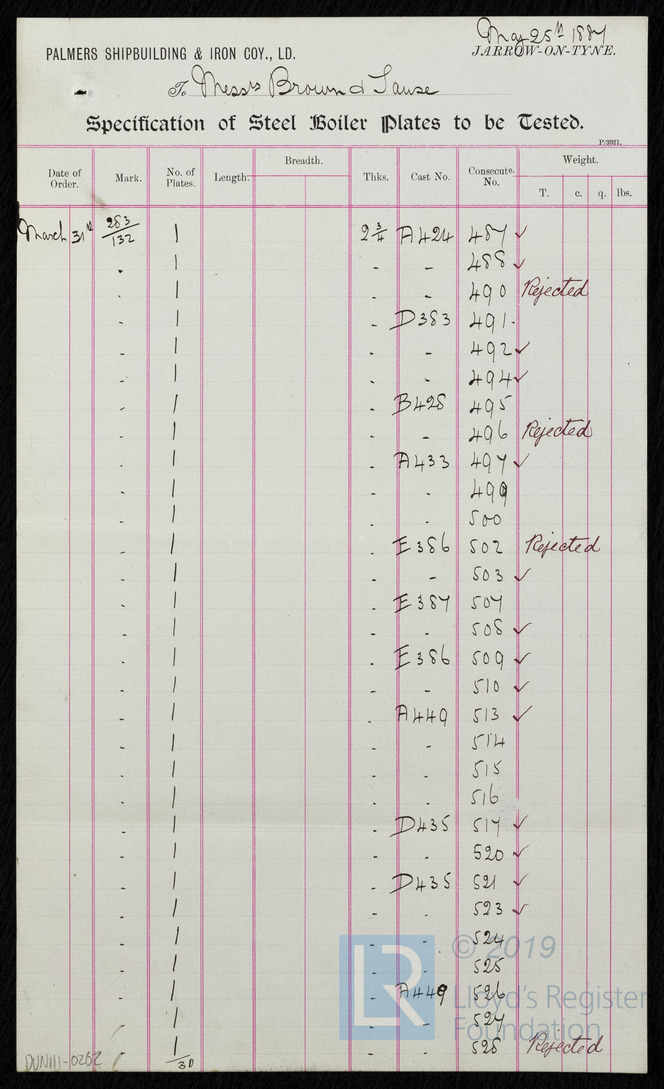 May 25th 1887
PALMERS SHIPBUILDING & IRON COY., LD. JARROW-ON-TYNE.
To Messrs Brown &
Specification of Steel Boiler Plates to be Tested.
P/3921.
Date of Order. Mark. No. of Plates. Length. Breadth. Thks. Cast No. Consecute. No. Weight.
T. c. q. lbs.
March 31st 283/132 1 2 3/4 A424 487 ✓
" 1 - - 488 ✓
" 1 - - 490 Rejected
" 1 - D383 491 -
" 1 - - 492 ✓
" 1 - - 494 ✓
" 1 - B428 495
" 1 - - 496 Rejected
" 1 - A433 497 ✓
" 1 - - 499
" 1 - - 500
" 1 - E386 502 Rejected
" 1 - - 503 ✓
" 1 - E387 507
" 1 - - 508 ✓
" 1 - E386 509 ✓
" 1 - - 510 ✓
" 1 - A449 513 ✓
" 1 - - 514
" 1 - - 515
" 1 - - 516
" 1 - D435 517 ✓
" 1 - - 520 ✓
" 1 - D435 521 ✓
" 1 - - 523 ✓
" 1 - - 524
" 1 - - 525
" 1 - A449 526
" 1 - - 527
" 1 - - 528 Rejected
30
DUN111-0262
© 2019
LR
Lloyd's Register
Foundation